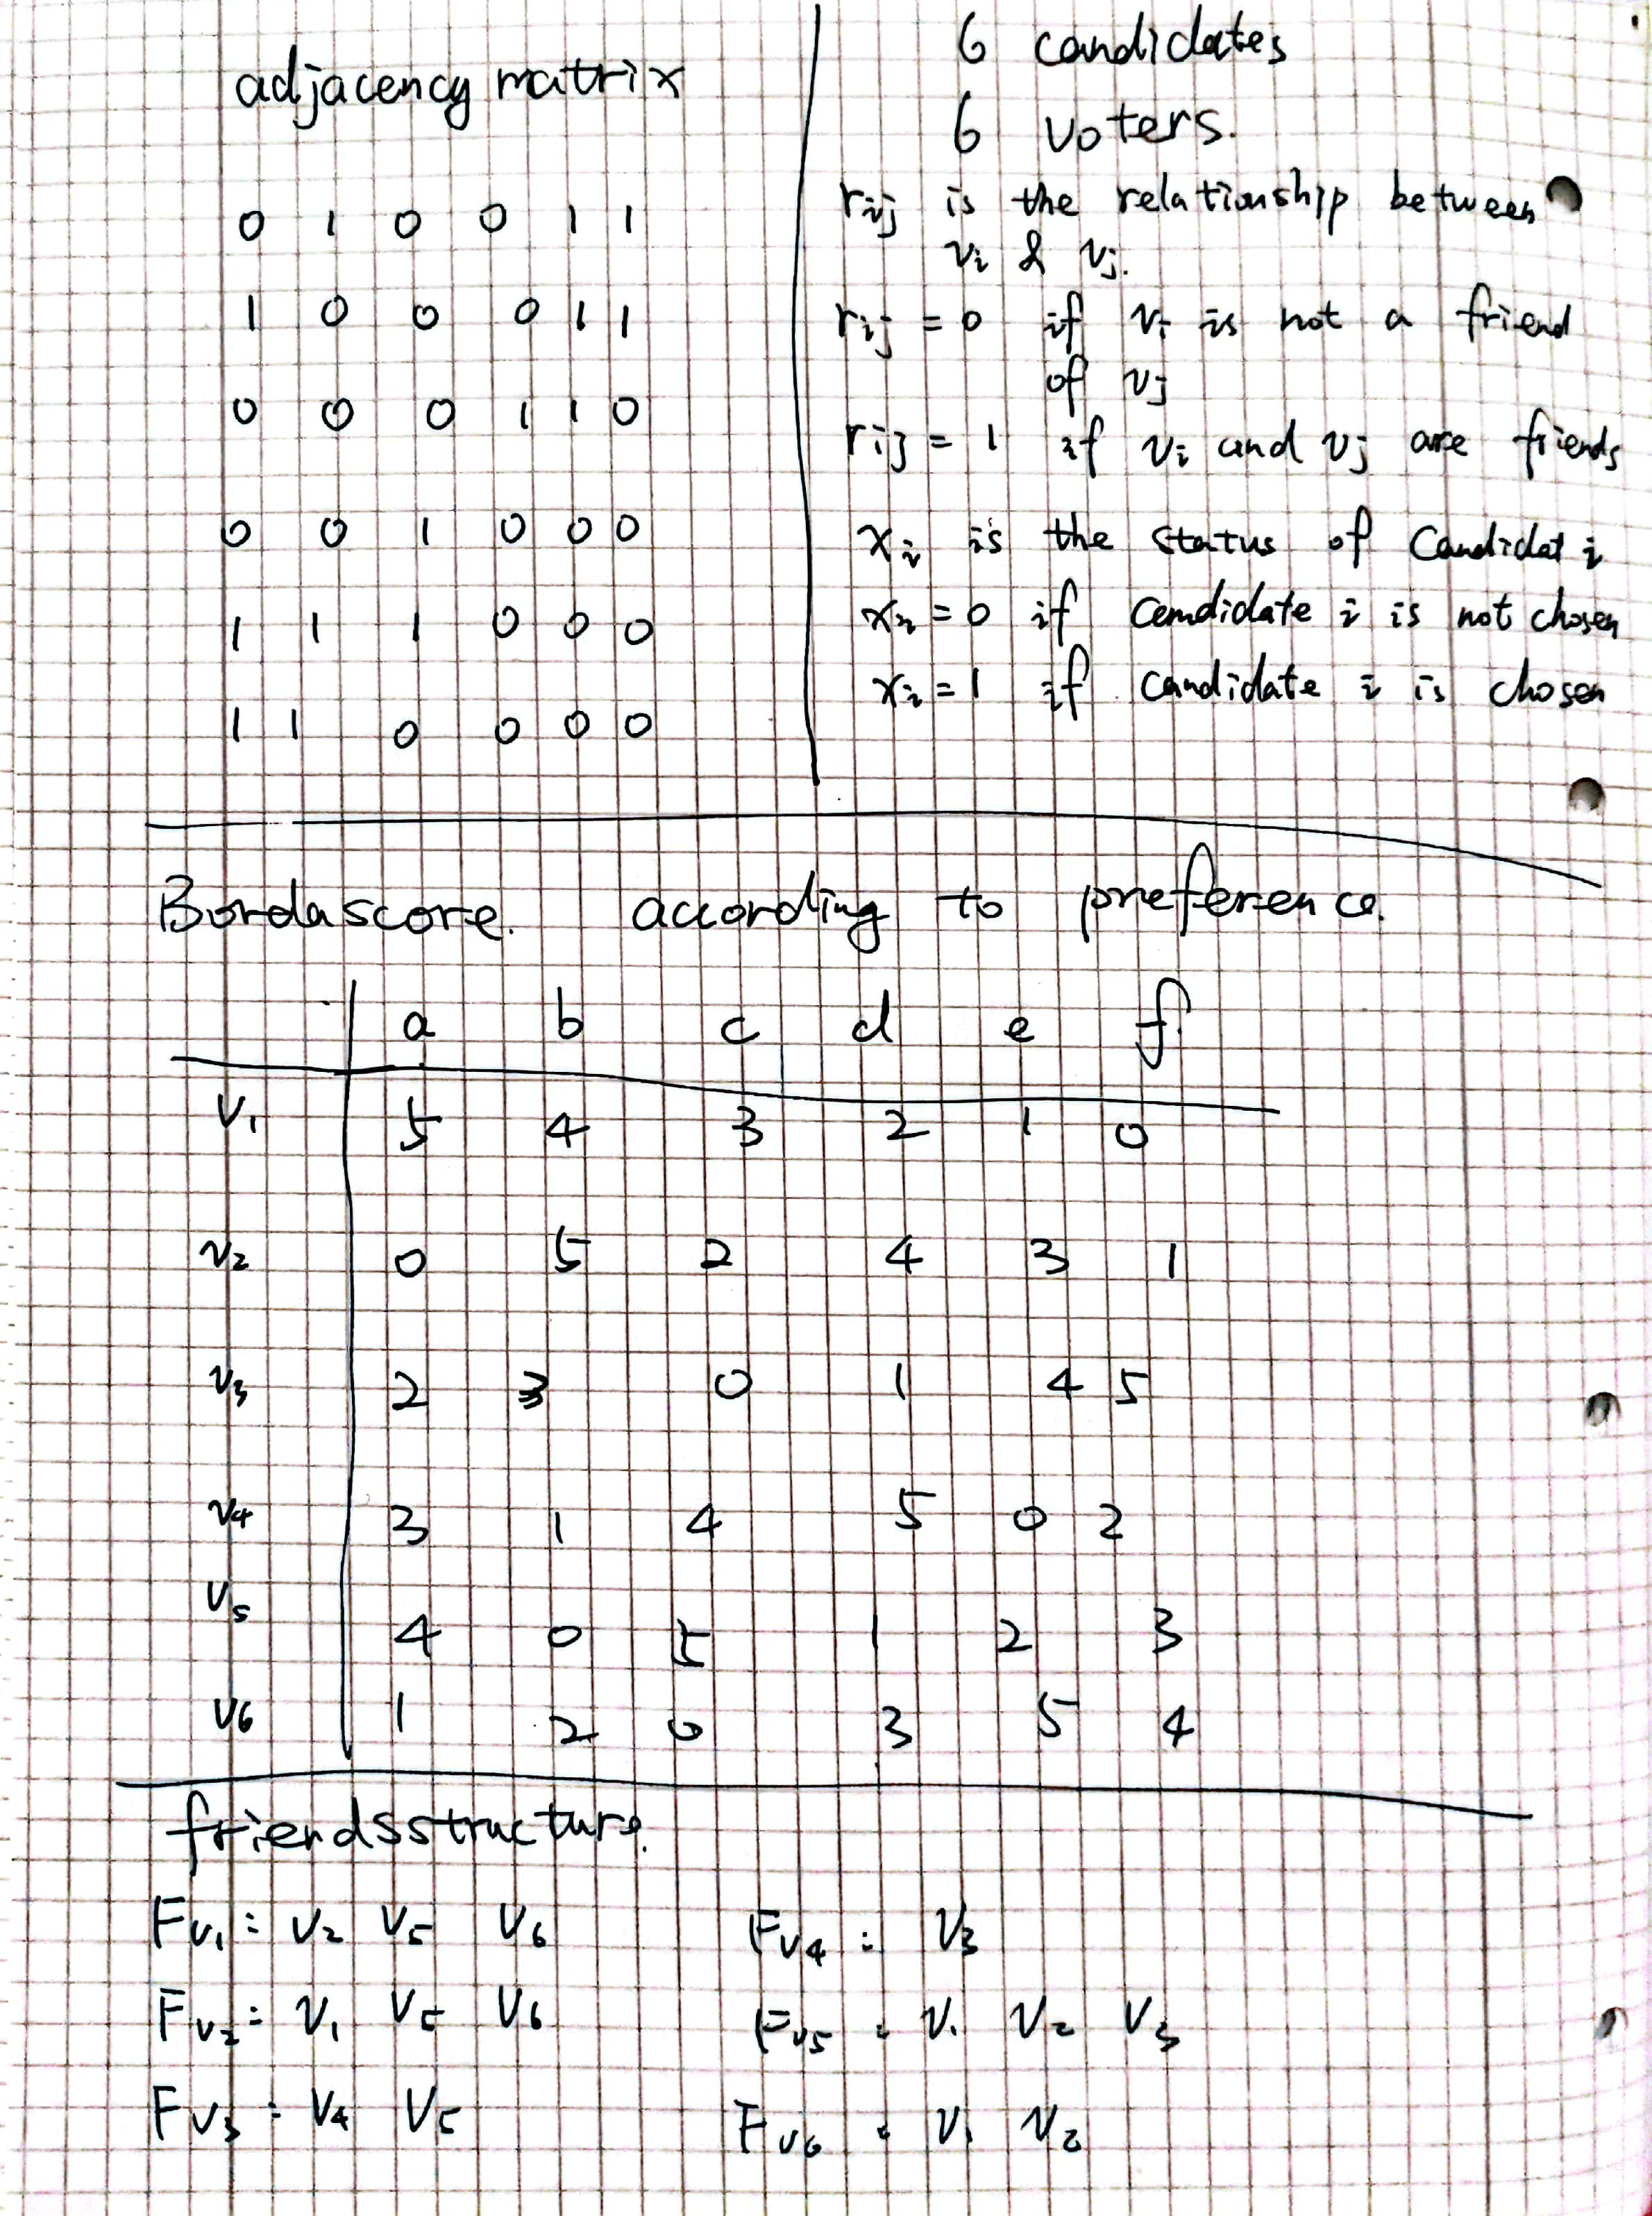 adjacency matrix
0 1 0 0 1 1
1 0 0 0 1 1
0 0 0 1 1 0
0 0 1 0 0 0
1 1 1 0 0 0
1 1 0 0 0 0
6 candidates
6 voters.
rij is the relationship between
vi & vj.
rij = 0 if vi is not a friend
of vj
rij = 1 if vi and vj are friends
xi is the status of Candidat i
xi = 0 if candidate i is not chosen
xi = 1 if candidate i is chosen
Bordascore. according to preference.
a b c d e f
V1 5 4 3 2 1 0
v2 0 5 2 4 3 1
v3 2 3 0 1 4 5
v4 3 1 4 5 0 2
V5 4 0 5 1 2 3
V6 1 2 0 3 5 4
friendsstructure.
Fv1 : v2 v5 v6
Fv2 : v1 v5 v6
Fv3 : v4 v5
Fv4 : v3
Fv5 : v1 v2 v3
Fv6 : v1 v2